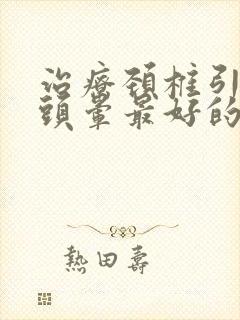 治療頸椎引
頭暈最好的
熱田壽